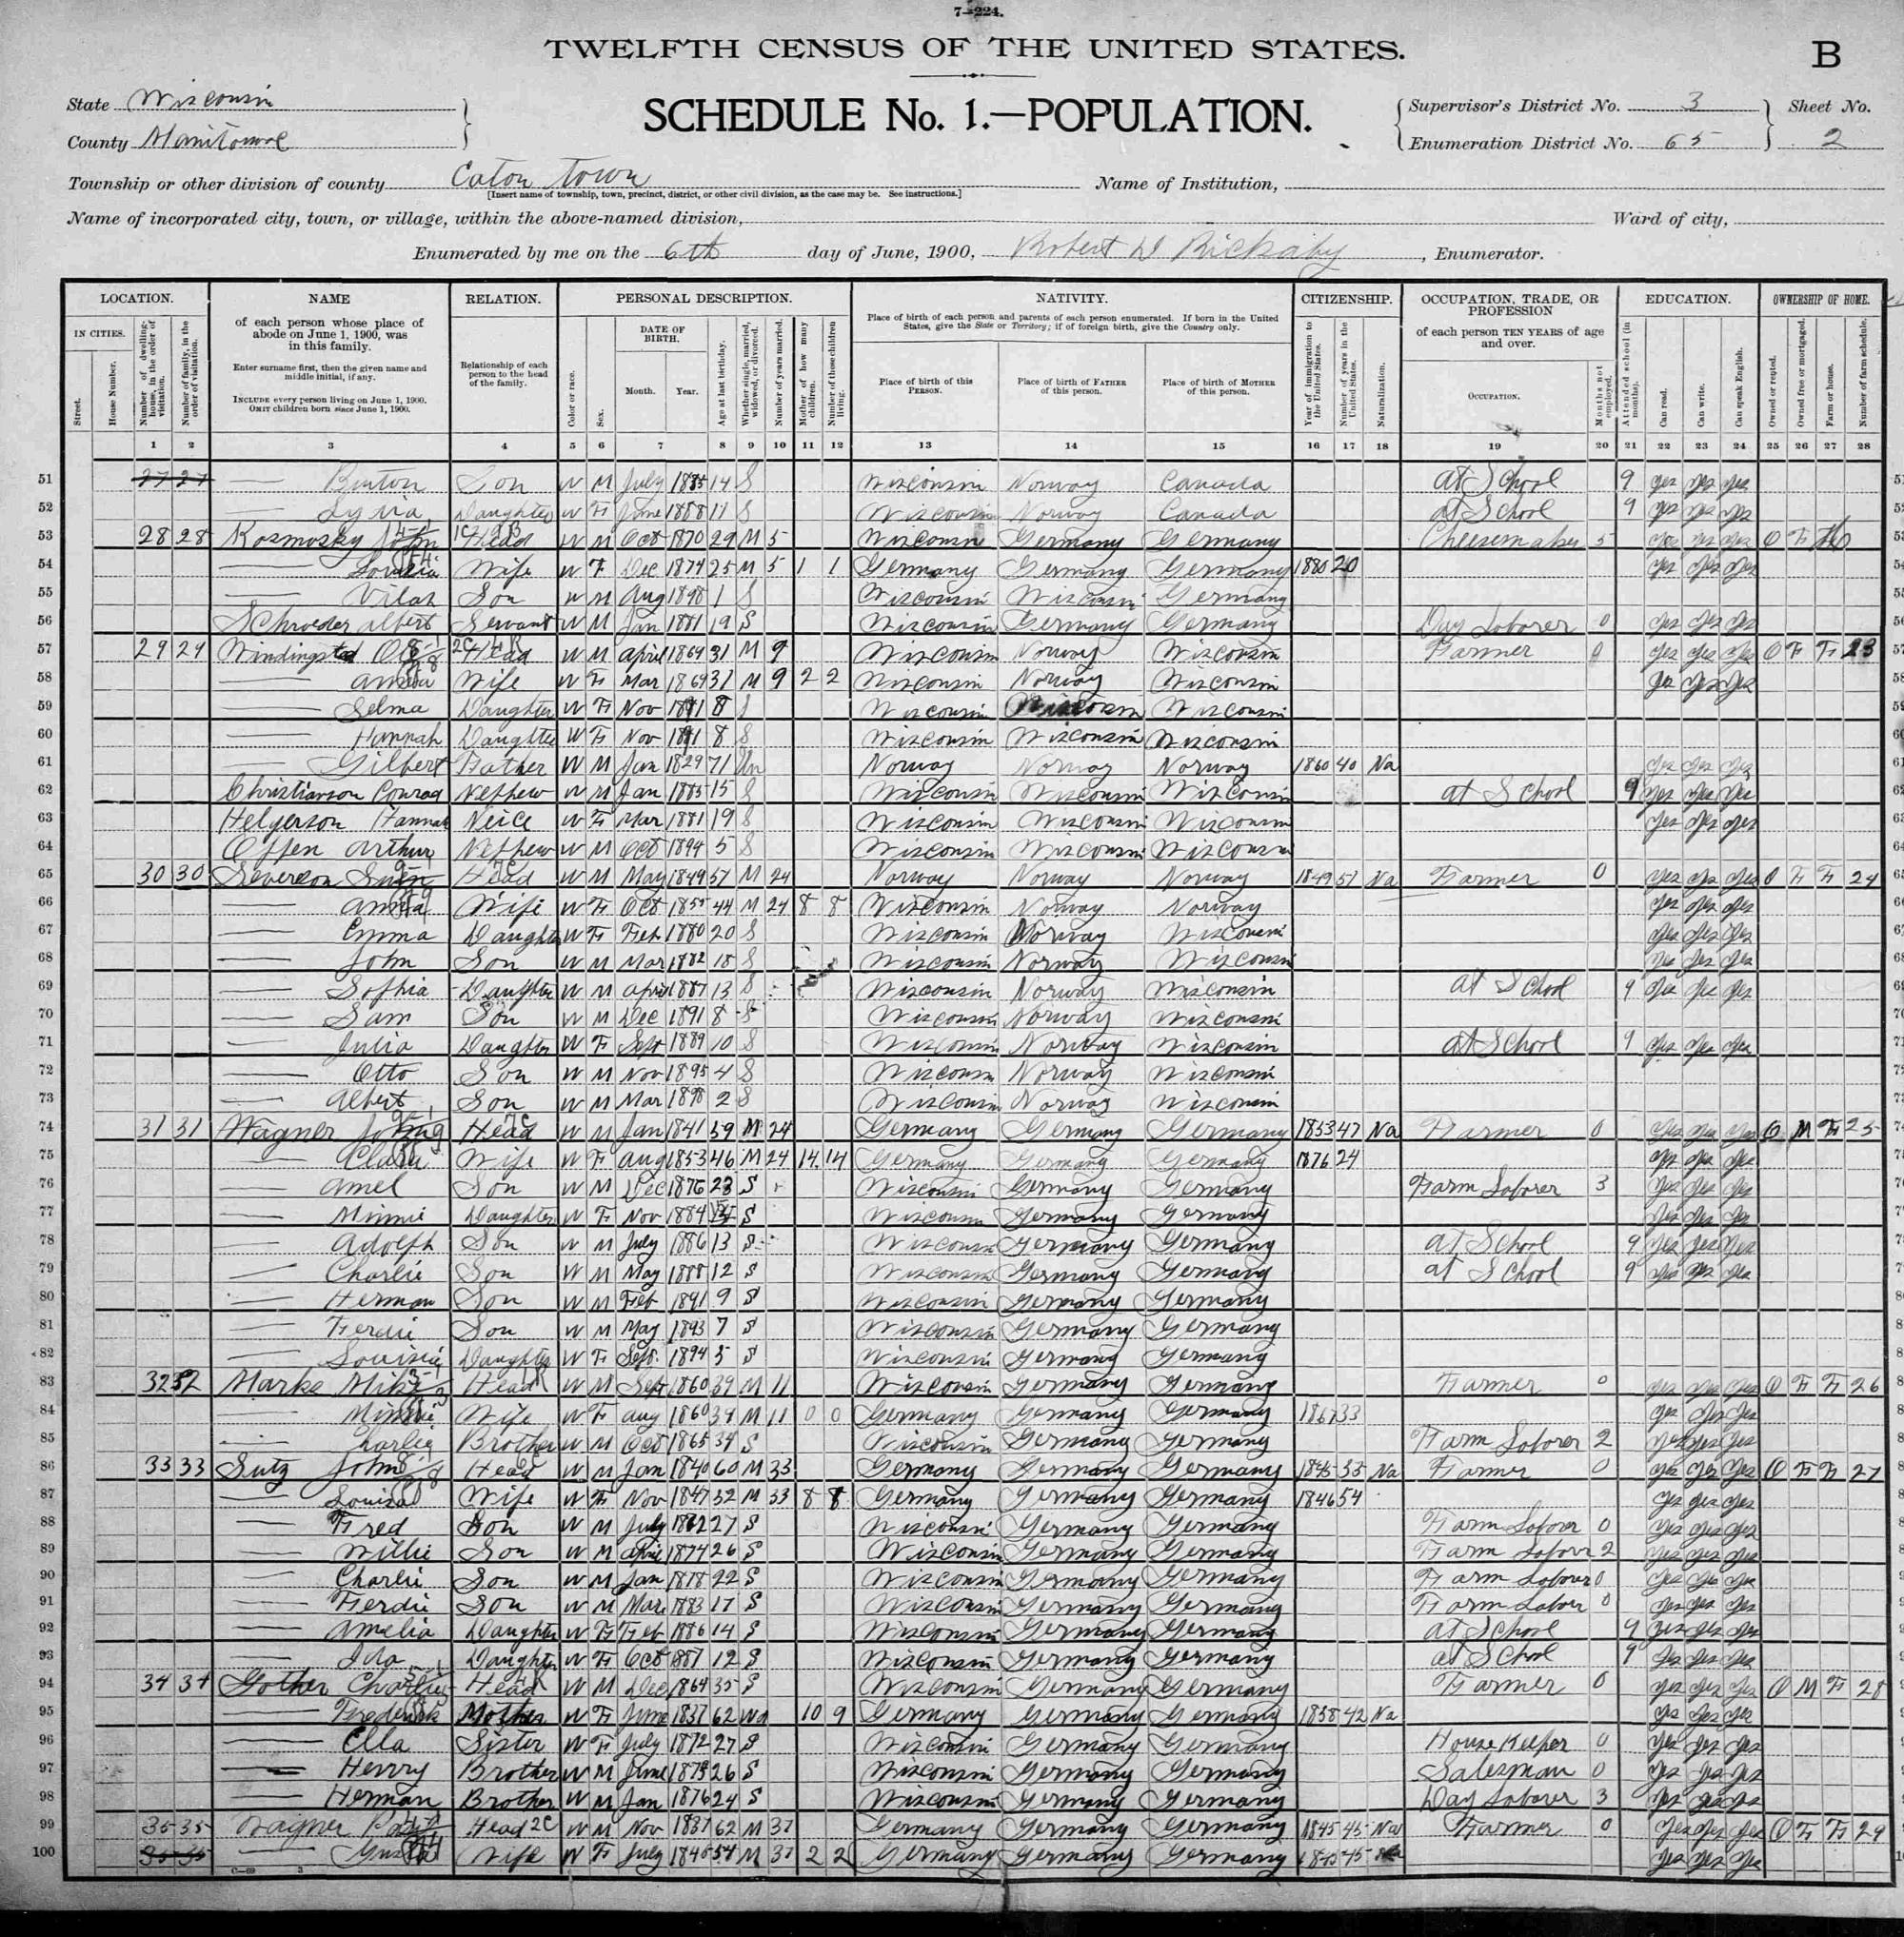 7-224.
TWELFTH CENSUS OF THE UNITED STATES.
B
State Wisconsin
County Manitowoc
SCHEDULE No. 1.—POPULATION.
Supervisor's District No. 3 Sheet No.
Enumeration District No. 65 2
Township or other division of county Eaton Town Name of Institution,
[Insert name of township, town, precinct, district, or other civil division, as the case may be. See instructions.]
Name of incorporated city, town, or village, within the above-named division, Ward of city,
Enumerated by me on the 6th day of June, 1900, Robert D Rickaby, Enumerator.
LOCATION. NAME RELATION. PERSONAL DESCRIPTION. NATIVITY. CITIZENSHIP. OCCUPATION, TRADE, OR PROFESSION EDUCATION. OWNERSHIP OF HOME.
IN CITIES. Street. House Number. Number of dwelling-house, in the order of visitation. Number of family, in the order of visitation.
of each person whose place of abode on June 1, 1900, was in this family.
Enter surname first, then the given name and middle initial, if any.
INCLUDE every person living on June 1, 1900. OMIT children born since June 1, 1900.
Relationship of each person to the head of the family.
Color or race. Sex. DATE OF BIRTH. Month. Year. Age at last birthday. Whether single, married, widowed, or divorced. Number of years married. Mother of how many children. Number of these children living.
Place of birth of each person and parents of each person enumerated. If born in the United States, give the State or Territory; if of foreign birth, give the Country only.
Place of birth of this PERSON. Place of birth of FATHER of this person. Place of birth of MOTHER of this person.
Year of immigration to the United States. Number of years in the United States. Naturalization.
of each person TEN YEARS of age and over. OCCUPATION. Months not employed.
Attended school (in months). Can read. Can write. Can speak English.
Owned or rented. Owned free or mortgaged. Farm or house. Number of farm schedule.
1 2 3 4 5 6 7 8 9 10 11 12 13 14 15 16 17 18 19 20 21 22 23 24 25 26 27 28
51 27 27 — Burton Son W M July 1885 14 S Wisconsin Norway Canada at School 9 yes yes yes
52 — Daughter W F June 1888 11 S Wisconsin Norway Canada at School 9 yes yes yes
53 28 28 Kosmosky John Head W M Oct 1870 29 M 5 Wisconsin Germany Germany Cheesemaker 5 yes yes yes O F H
54 — Wife W F Dec 1874 25 M 5 1 1 Germany Germany Germany 1880 20 yes yes yes
55 — Vilas Son W M Aug 1898 1 S Wisconsin Wisconsin Germany
56 Schroeder Albert Servant W M Jan 1881 19 S Wisconsin Germany Germany Day Laborer 0 yes yes yes
57 29 29 Head W M April 1869 31 M 9 Wisconsin Norway Wisconsin Farmer 0 yes yes yes O F F 23
58 — Wife W F Mar 1869 31 M 9 2 2 Wisconsin Norway Wisconsin yes yes yes
59 — Selma Daughter W F Nov 1891 8 S Wisconsin Wisconsin Wisconsin
60 — Hannah Daughter W F Nov 1891 8 S Wisconsin Wisconsin Wisconsin
61 — Gilbert Father W M Jan 1829 71 Norway Norway Norway 1860 40 Na yes yes yes
62 Christianson Conrad Nephew W M Jan 1885 15 S Wisconsin Wisconsin Wisconsin at School 9 yes yes yes
63 Helgerson Hannah Neice W F Mar 1881 19 S Wisconsin Wisconsin Wisconsin yes yes yes
64 Offen Arthur Nephew W M Oct 1894 5 S Wisconsin Wisconsin Wisconsin
65 30 30 Severson Head W M May 1849 51 M 24 Norway Norway Norway 1849 51 Na Farmer 0 yes yes yes O F F 24
66 — Anna Wife W F Oct 1855 44 M 24 8 8 Wisconsin Norway Norway yes yes yes
67 — Emma Daughter W F Feb 1880 20 S Wisconsin Norway Wisconsin yes yes yes
68 — John Son W M Mar 1882 18 S Wisconsin Norway Wisconsin yes yes yes
69 — Sophia Daughter W M April 1887 13 S Wisconsin Norway Wisconsin at School 9 yes yes yes
70 — Sam Son W M Dec 1891 8 S Wisconsin Norway Wisconsin
71 — Julia Daughter W F Sept 1889 10 S Wisconsin Norway Wisconsin at School 9 yes yes yes
72 — Otto Son W M Nov 1895 4 S Wisconsin Norway Wisconsin
73 — Albert Son W M Mar 1898 2 S Wisconsin Norway Wisconsin
74 31 31 Wagner John Head W M Jan 1841 59 M 24 Germany Germany Germany 1853 47 Na Farmer 0 yes yes yes O M F 25
75 — Clara Wife W F Aug 1853 46 M 24 14 14 Germany Germany Germany 1876 24 yes yes yes
76 — Amel Son W M Dec 1876 23 S Wisconsin Germany Germany Farm Laborer 3 yes yes yes
77 — Minnie Daughter W F Nov 1884 S Wisconsin Germany Germany yes yes yes
78 — Adolph Son W M July 1886 13 S Wisconsin Germany Germany at School 9 yes yes yes
79 — Charlie Son W M May 1888 12 S Wisconsin Germany Germany at School 9 yes yes yes
80 — Herman Son W M Feb 1891 9 S Wisconsin Germany Germany
81 — Ferdie Son W M May 1893 7 S Wisconsin Germany Germany
82 — Louisia Daughter W F Sept. 1894 5 S Wisconsin Germany Germany
83 32 32 Marks Mike Head W M Sept 1860 39 M 11 Wisconsin Germany Germany Farmer 0 yes yes yes O F F 26
84 — Minnie Wife W F Aug 1860 39 M 11 0 0 Germany Germany Germany 1867 33 yes yes yes
85 — Charlie Brother W M Oct 1865 34 S Wisconsin Germany Germany Farm Laborer 2 yes yes yes
86 33 33 Lutz John Head W M Jan 1840 60 M 33 Germany Germany Germany 1845 55 Na Farmer 0 yes yes yes O F F 27
87 — Louisa Wife W F Nov 1847 52 M 33 8 8 Germany Germany Germany 1846 54 yes yes yes
88 — Fred Son W M July 1872 27 S Wisconsin Germany Germany Farm Laborer 0 yes yes yes
89 — Willie Son W M April 1874 26 S Wisconsin Germany Germany Farm Laborer 2 yes yes yes
90 — Charlie Son W M Jan 1878 22 S Wisconsin Germany Germany Farm Laborer 0 yes yes yes
91 — Ferdie Son W M Mar 1883 17 S Wisconsin Germany Germany Farm Labor 0 yes yes yes
92 — Amelia Daughter W F Feb 1886 14 S Wisconsin Germany Germany at School 9 yes yes yes
93 — Ida Daughter W F Oct 1887 12 S Wisconsin Germany Germany at School 9 yes yes yes
94 34 34 Gother Charlie Head W M Dec 1864 35 S Wisconsin Germany Germany Farmer 0 yes yes yes O M F 28
95 — Mother W F June 1837 62 Wd 10 9 Germany Germany Germany 1858 42 Na yes yes yes
96 — Ella Sister W F July 1872 27 S Wisconsin Germany Germany House Keeper 0 yes yes yes
97 — Henry Brother W M June 1873 26 S Wisconsin Germany Germany Salesman 0 yes yes yes
98 — Herman Brother W M Jan 1876 24 S Wisconsin Germany Germany Day Laborer 3 yes yes yes
99 35 35 Wagner Head W M Nov 1837 62 M 37 Germany Germany Germany 1845 45 Na Farmer 0 yes yes yes O F F 29
100 35 35 — Wife W F July 1845 54 M 37 2 2 Germany Germany Germany 45 yes yes yes